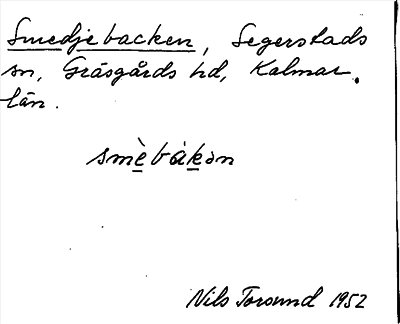 Smedjebacken, Segerstads
sn, Gräsgårds hd, Kalmar
län.
smὲbàkən
Nils Torsund 1952